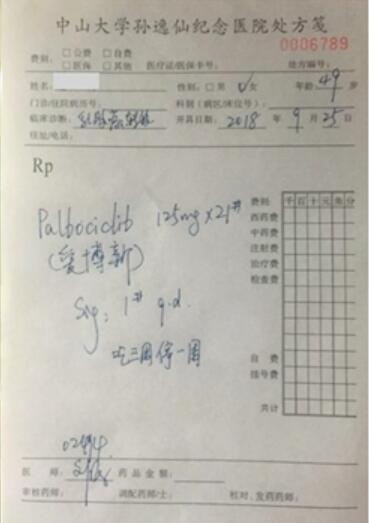 中山大学孙逸仙纪念医院处方笺
0006789
费别: □公费 □自费
□医保 □其他 医疗证/医保卡号: 处方编号:
姓名: 性别: □男 √女 年龄: 49 岁
门诊/住院病历号: 科别(病区/床位号):
临床诊断: 乳腺癌 开具日期: 2018 年 9 月 25 日
住址/电话:
Rp
费别 千 百 十 元 角 分
西药费
中药费
注射费
治疗费
检查费
自费
挂号费
共计
Palbociclib 125mg×21#
(爱博新)
Sig: 1# q.d.
吃三周停一周
医师: 药品金额:
审核药师: 调配药师/士: 核对、发药药师: